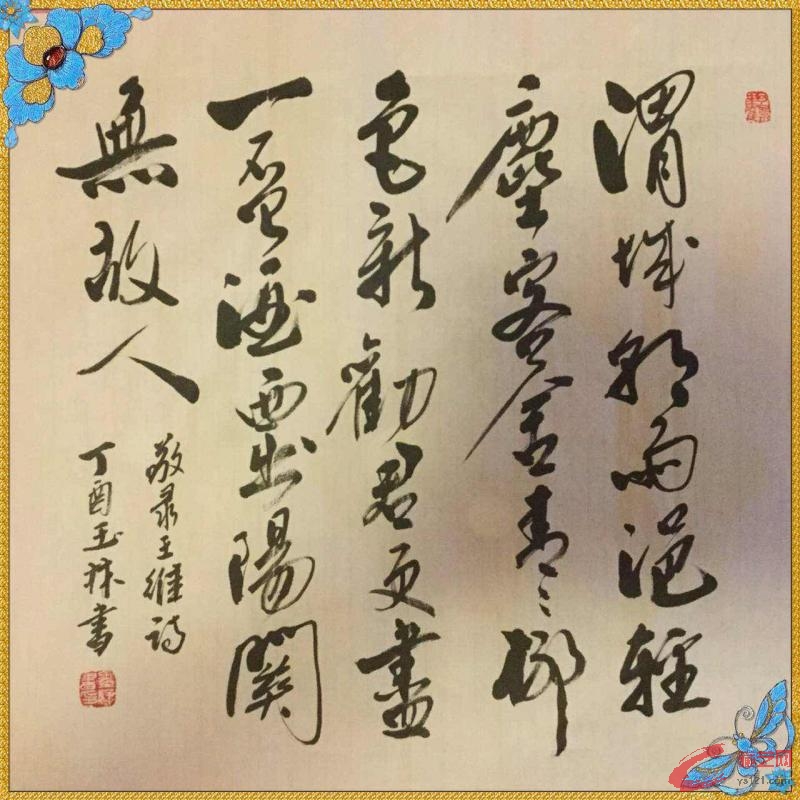 渭城朝雨浥輕
塵客舍青青柳
色新勸君更盡
一杯酒西出陽關
無故人
敬录王維詩
丁酉玉林書